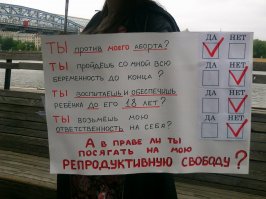 ДА НЕТ
ТЫ ПРОТИВ МОЕГО АБОРТА?
ТЫ ПРОЙДЁШЬ СО МНОЙ ВСЮ
БЕРЕМЕННОСТЬ ДО КОНЦА?
ТЫ ВОСПИТАЕШЬ И ОБЕСПЕЧИШЬ
РЕБЁНКА ДО ЕГО 18 ЛЕТ?
ТЫ ВОЗЬМЁШЬ МОЮ
ОТВЕТСТВЕННОСТЬ НА СЕБЯ?
А В ПРАВЕ ЛИ ТЫ
ПОСЯГАТЬ НА МОЮ
РЕПРОДУКТИВНУЮ СВОБОДУ?